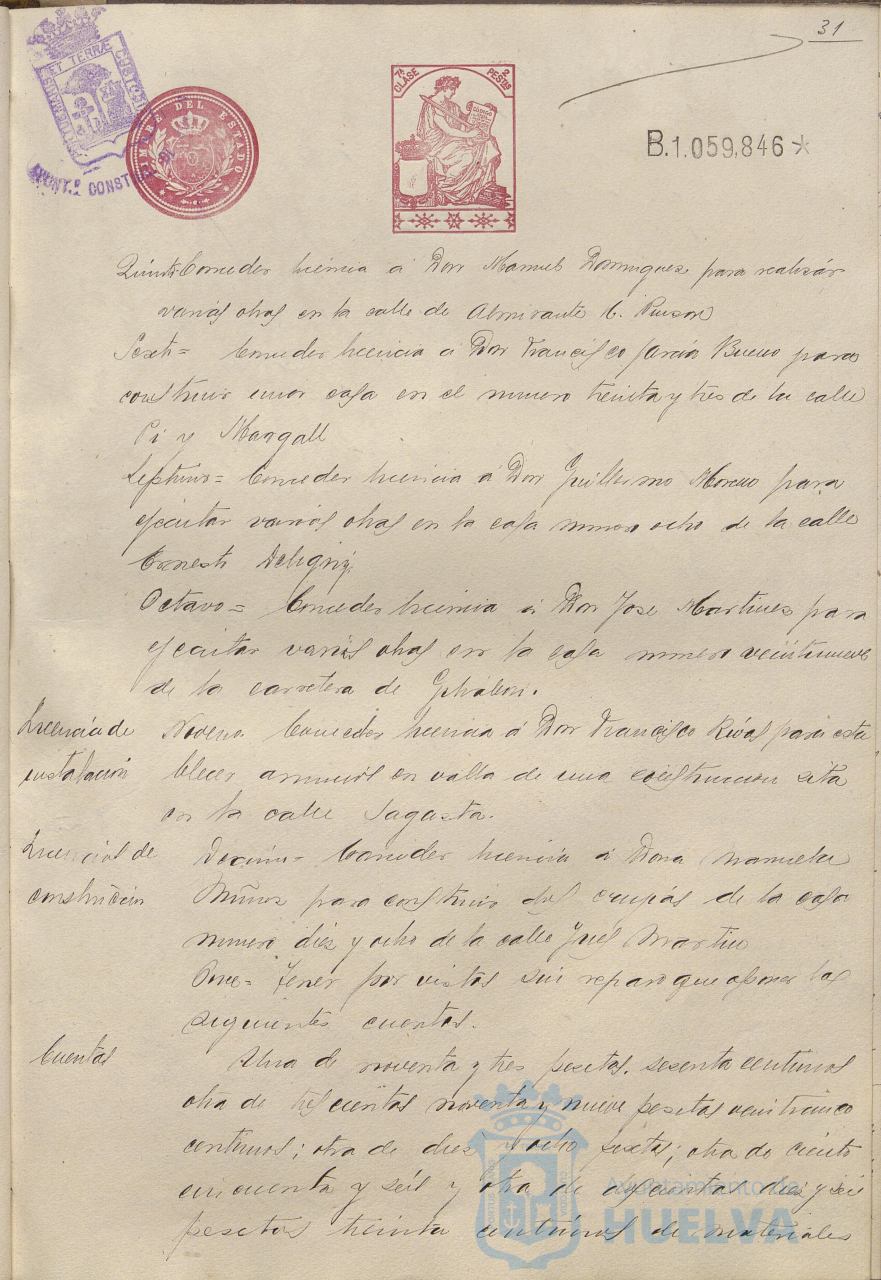 31
PORTUS MARIS ET TERRÆ CUSTODIA
AYUNT.º CONST
TIMBRE DEL ESTADO
7ª CLASE 2 PESTAS
B.1.059,846*
Quinto Conceder licencia á Don Manuel Dominguez para realizar
varias obras en la calle de Almirante H. Pinzon
Sexto= Conceder licencia á Don Francisco Garcia Bueno para
construir una casa en el numero treinta y tres de la calle
Pi y Margall
Septimo= Conceder licencia á Don Guillermo Moreno para
ejecutar varias obras en la casa numero ocho de la calle
Ernesto Deligny
Octavo= Conceder licencia á Don Jose Martinez para
ejecutar varias obras en la casa numero veintinueve
de la carretera de Gibraleon.
Licencia de
instalación
Noveno Conceder licencia á Don Francisco Rivas para esta
blecer anuncios en valla de una construccion sita
en la calle Sagasta.
Licencias de
construccion
Decimo= Conceder licencia á Dona Manuela
Muñoz para construir dos de la casa
numero diez y ocho de la calle Martin
Once= Tener por vistas sin reparo que oponer las
siguientes cuentas.
Cuentas
Una de noventa y tres pesetas, sesenta centimos
otra de trescientas noventa y nueve pesetas veinticinco
centimos; otra de diez y ocho pesetas; otra de ciento
cincuenta y seis y otra de doscientas diez y seis
pesetas treinta centimos de materiales
Ayuntamiento de
HUELVA